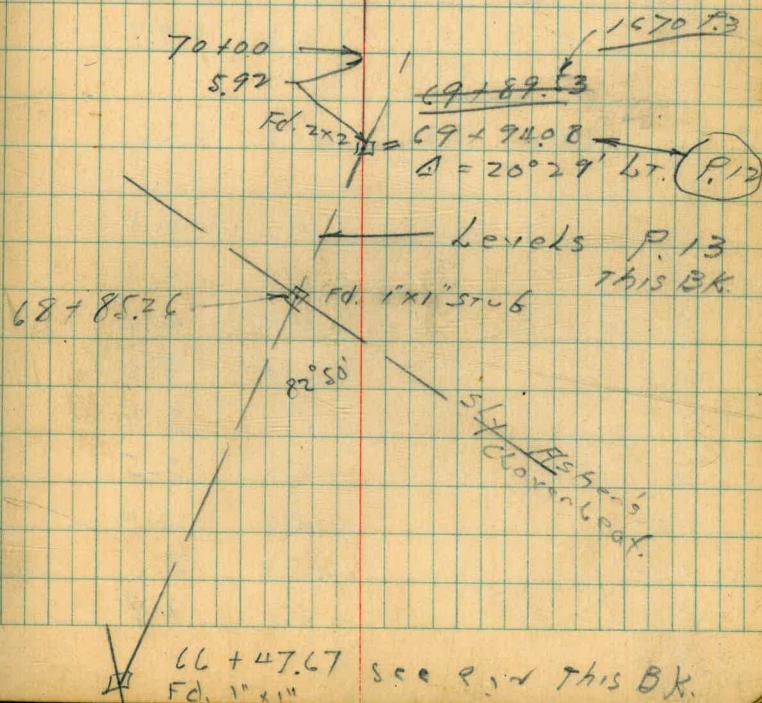 1670 P.3
70+00
5.92
69+89.53
Fd. 2x2 = 69+94.08
Δ = 20°29' LT. P.12
Levels P.13
This BK.
68+85.26 Fd. 1"x1" STUB
82°50'
S'LY Asher's
Cloverleaf.
66+47.67 see This BK.
Fd. 1"x1"